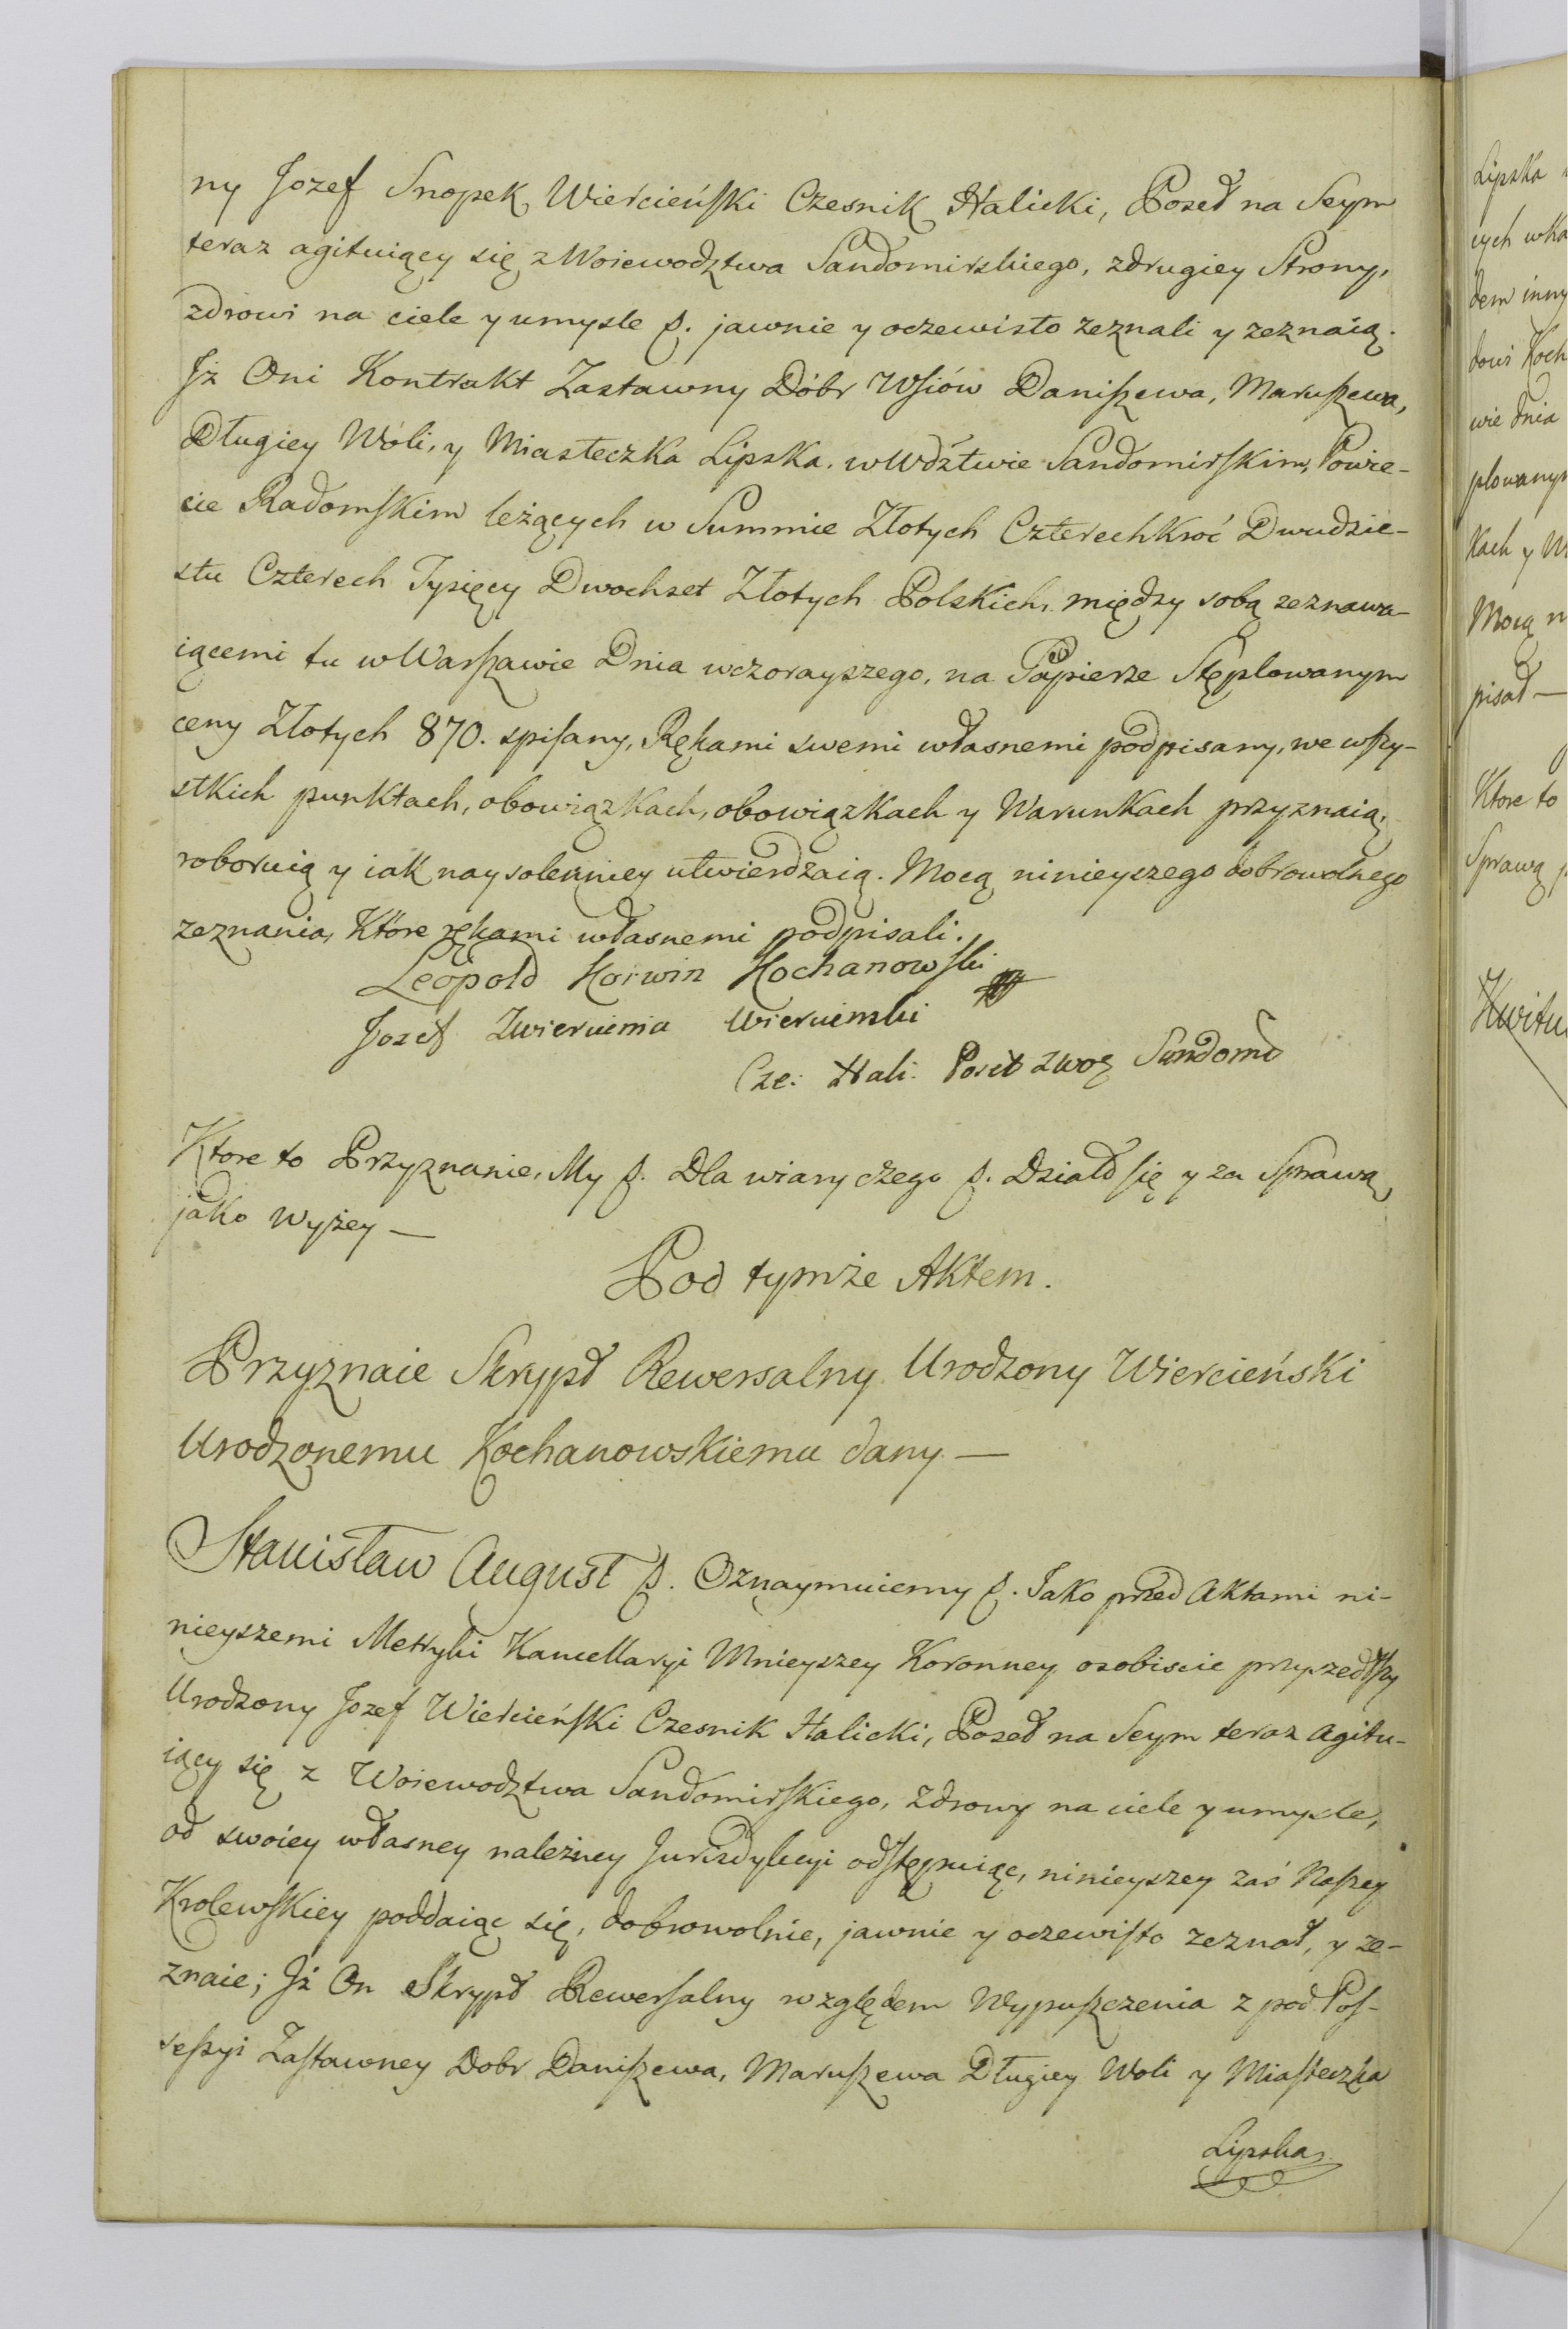 ny Jozef Snopek Wiercieński Czesnik Halicki, Poseł na Seym
teraz agituiący się z Woiewodztwa Sandomirskiego, zdrugiey Strony,
zdrowi na ciele y umysle p. jawnie y oczewisto zeznali y zeznaią.
Jż Oni Kontrakt Zastawny Dóbr Wsiów Daniszewa, Maruszewa,
Długiey Wóli, y Miasteczka Lipska, w Wdztwie Sandomirskim, Powie-
cie Radomskim leżących w Summie Złotych Czterechkroć Dwudzie-
stu Czterech Tysięcy Dwochset Złotych Polskich, między sobą zeznawa-
iącemi tu w Warszawie Dnia wczorayszego, na Papierze Stęplowanym
ceny Złotych 870. spisany, Rękami swemi własnemi podpisany, we wszy-
stkich punktach, obowiązkach, obowiązkach y Warunkach przyznaią,
roboruią y iak naysolenniey utwierdzaią. Mocą ninieyszego dobrowolnego
zeznania, Ktore rękami własnemi podpisali.
Leopold Korwin Kochanowski
Jozef Zwiercienia Wiercienski
Cze: Hali: Poseł z Wo Sandom
Ktore to Przyznanie, My p. Dla wiary czego p. Działo się y za Sprawą,
jako wyżey —
Pod tymże Aktem.
Przyznaie Skrypt Rewersalny Urodzony Wiercieński
Urodzonemu Kochanowskiemu dany —
Stanisław August p. Oznaymuiemy p. Jako przed Aktami ni-
nieyszemi Metryki Kancellaryi Mnieyszey Koronney osobiscie przyszedłszy
Urodzony Jozef Wiercieński Czesnik Halicki, Poseł na Seym teraz agitu-
iący się z Woiewodztwa Sandomirskiego, zdrowy na ciele y umysle,
od swoiey własney należney Jurisdykcyi odstępuiąc, ninieyszey zaś Naszey
Krolewskiey poddaiąc się, dobrowolnie, jawnie y oczewisto zeznał, y ze-
znaie; Jż On Skrypt Rewersalny względem Wypuszczenia z pod Pos-
sessyi Zastawney Dobr Daniszewa, Maruszewa Długiey Woli y Miasteczka
Lipska
Lipska
cych
dem inny
dowi Koch
wie dnia
plowanym
kach y
Mocą
pisał —
Ktore to
Sprawą